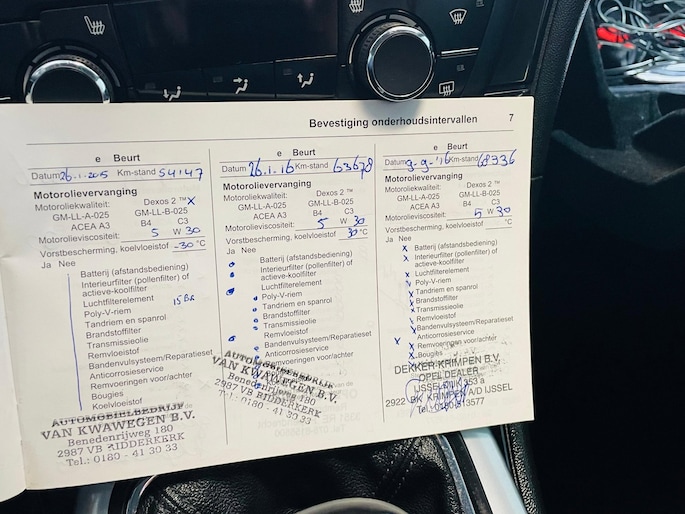 Bevestiging onderhoudsintervallen 7
e Beurt
Datum 26-1-2015 Km-stand 54147
Motorolievervanging
Motoroliekwaliteit: Dexos 2 ™ X
GM-LL-A-025 GM-LL-B-025
ACEA A3 B4 C3
Motorolieviscositeit: 5 W 30
Vorstbescherming, koelvloeistof -30 °C
Ja Nee
Batterij (afstandsbediening)
Interieurfilter (pollenfilter) of
actieve-koolfilter
Luchtfilterelement 15Bs
Poly-V-riem
Tandriem en spanrol
Brandstoffilter
Transmissieolie
Remvloeistof
Bandenvulsysteem/Reparatieset
Anticorrosieservice
Remvoeringen voor/achter
Bougies
Koelvloeistof
AUTOMOBIELBEDRIJF
VAN KWAWEGEN B.V.
Benedenrijweg 180
2987 VB RIDDERKERK
Tel.: 0180 - 41 30 33
e Beurt
Datum 26-1-16 Km-stand 63678
Motorolievervanging
Motoroliekwaliteit: Dexos 2 ™
GM-LL-A-025 GM-LL-B-025
ACEA A3 B4 C3
Motorolieviscositeit: 5 W 30
Vorstbescherming, koelvloeistof 30 °C
Ja Nee
Batterij (afstandsbediening)
Interieurfilter (pollenfilter) of
actieve-koolfilter
Luchtfilterelement
Poly-V-riem
Tandriem en spanrol
Brandstoffilter
Transmissieolie
Remvloeistof
Bandenvulsysteem/Reparatieset
Anticorrosieservice
Remvoeringen voor/achter
AUTOMOBIELBEDRIJF
VAN KWAWEGEN B.V.
Benedenrijweg 180
2987 VB RIDDERKERK
Tel.: 0180 - 41 30 33
e Beurt
Datum 9-9-'16 Km-stand 68336
Motorolievervanging
Motoroliekwaliteit: Dexos 2 ™
GM-LL-A-025 GM-LL-B-025
ACEA A3 B4 C3
Motorolieviscositeit: 5 W 30
Vorstbescherming, koelvloeistof °C
Ja Nee
X Batterij (afstandsbediening)
X Interieurfilter (pollenfilter) of
actieve-koolfilter
X Luchtfilterelement
X Poly-V-riem
X Tandriem en spanrol
X Brandstoffilter
X Transmissieolie
Remvloeistof
X Bandenvulsysteem/Reparatieset
X Anticorrosieservice
X Remvoeringen voor/achter
X Bougies
DEKKER KRIMPEN B.V.
OPEL DEALER
IJSSELDIJK 353 a
2922 BK KRIMPEN A/D IJSSEL